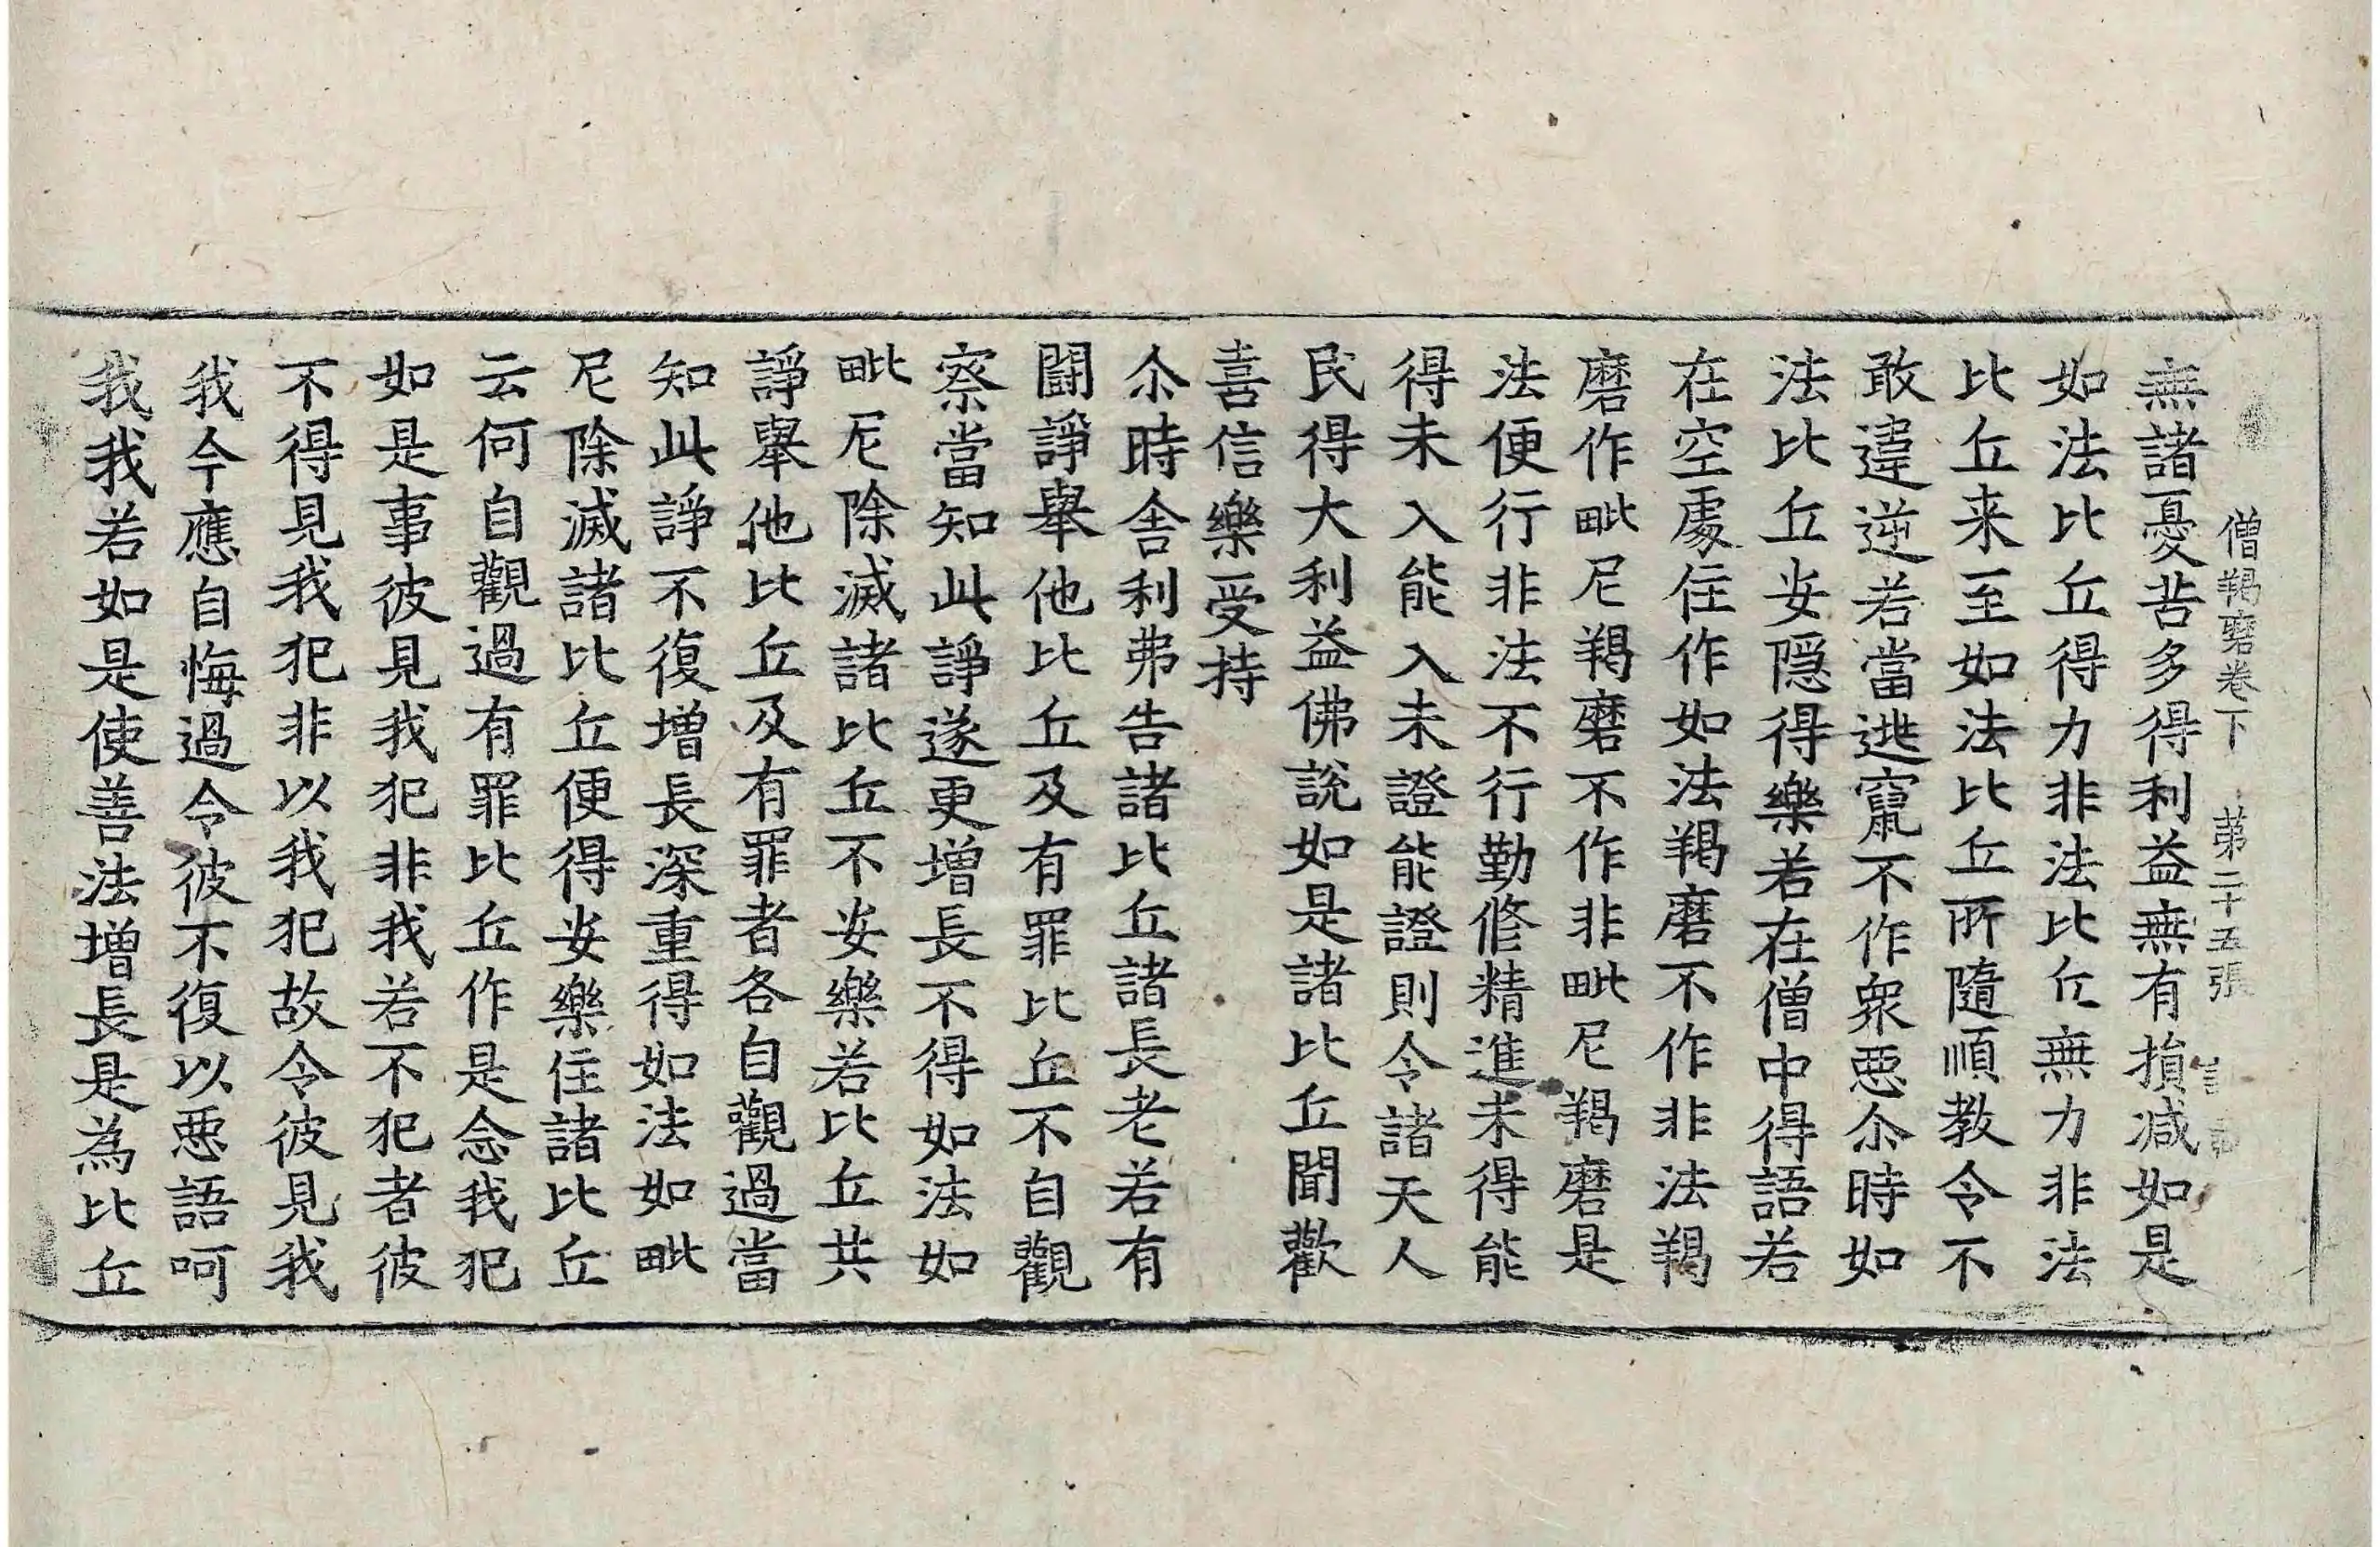 僧羯磨卷下　第二十五張
無諸憂苦多得利益無有損减如是
如法比丘得力非法比丘無力非法
比丘来至如法比丘所隨順教令不
敢違逆若當逃竄不作衆惡尒時如
法比丘安隱得樂若在僧中得語若
在空處住作如法羯磨不作非法羯
磨作毗尼羯磨不作非毗尼羯磨是
法便行非法不行勤修精進未得能
得未入能入未證能證則令諸天人
民得大利益佛說如是諸比丘聞歡
喜信樂受持
尒時舎利弗告諸比丘諸長老若有
鬪諍舉他比丘及有罪比丘不自觀
察當知此諍遂更增長不得如法如
毗尼除滅諸比丘不安樂若比丘共
諍舉他比丘及有罪者各自觀過當
知此諍不復增長深重得如法如毗
尼除滅諸比丘便得安樂住諸比丘
云何自觀過有罪比丘作是念我犯
如是事彼見我犯非我若不犯者彼
不得見我犯非以我犯故令彼見我
我今應自悔過令彼不復以惡語呵
我我若如是使善法增長是為比丘